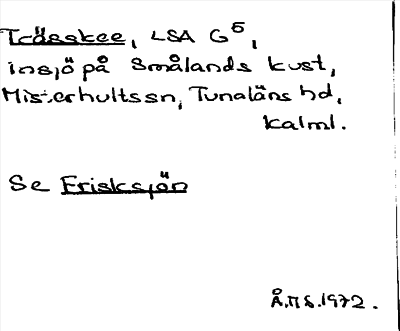 Trässkee, LSA G5,
insjö på Smålands kust,
Misterhultssn, Tunaläns hd,
Kalml.
Se Frisksjön
Å.M.S. 1972.